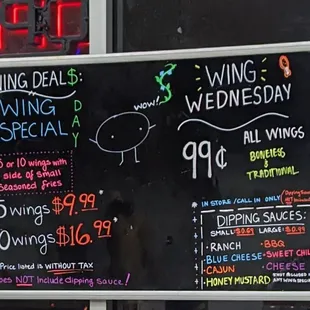 ING DEAL$:
WING
SPECIAL
DAY
5 or 10 wings with
side of small
seasoned fries
5 wings $9.99*
0 wings $16.99*
Price listed is WITHOUT TAX
oes NOT Include dipping sauce!
WOW!
WING
WEDNESDAY
99¢
ALL WINGS
BONELESS
&
TRADITIONAL
* IN STORE / CALL IN ONLY
DIPPING SAUCES:
SMALL: $0.69 LARGE: $0.99
· RANCH
· BLUE CHEESE
· CAJUN
· HONEY MUSTARD
· BBQ
· SWEET CHIL
· CHEESE